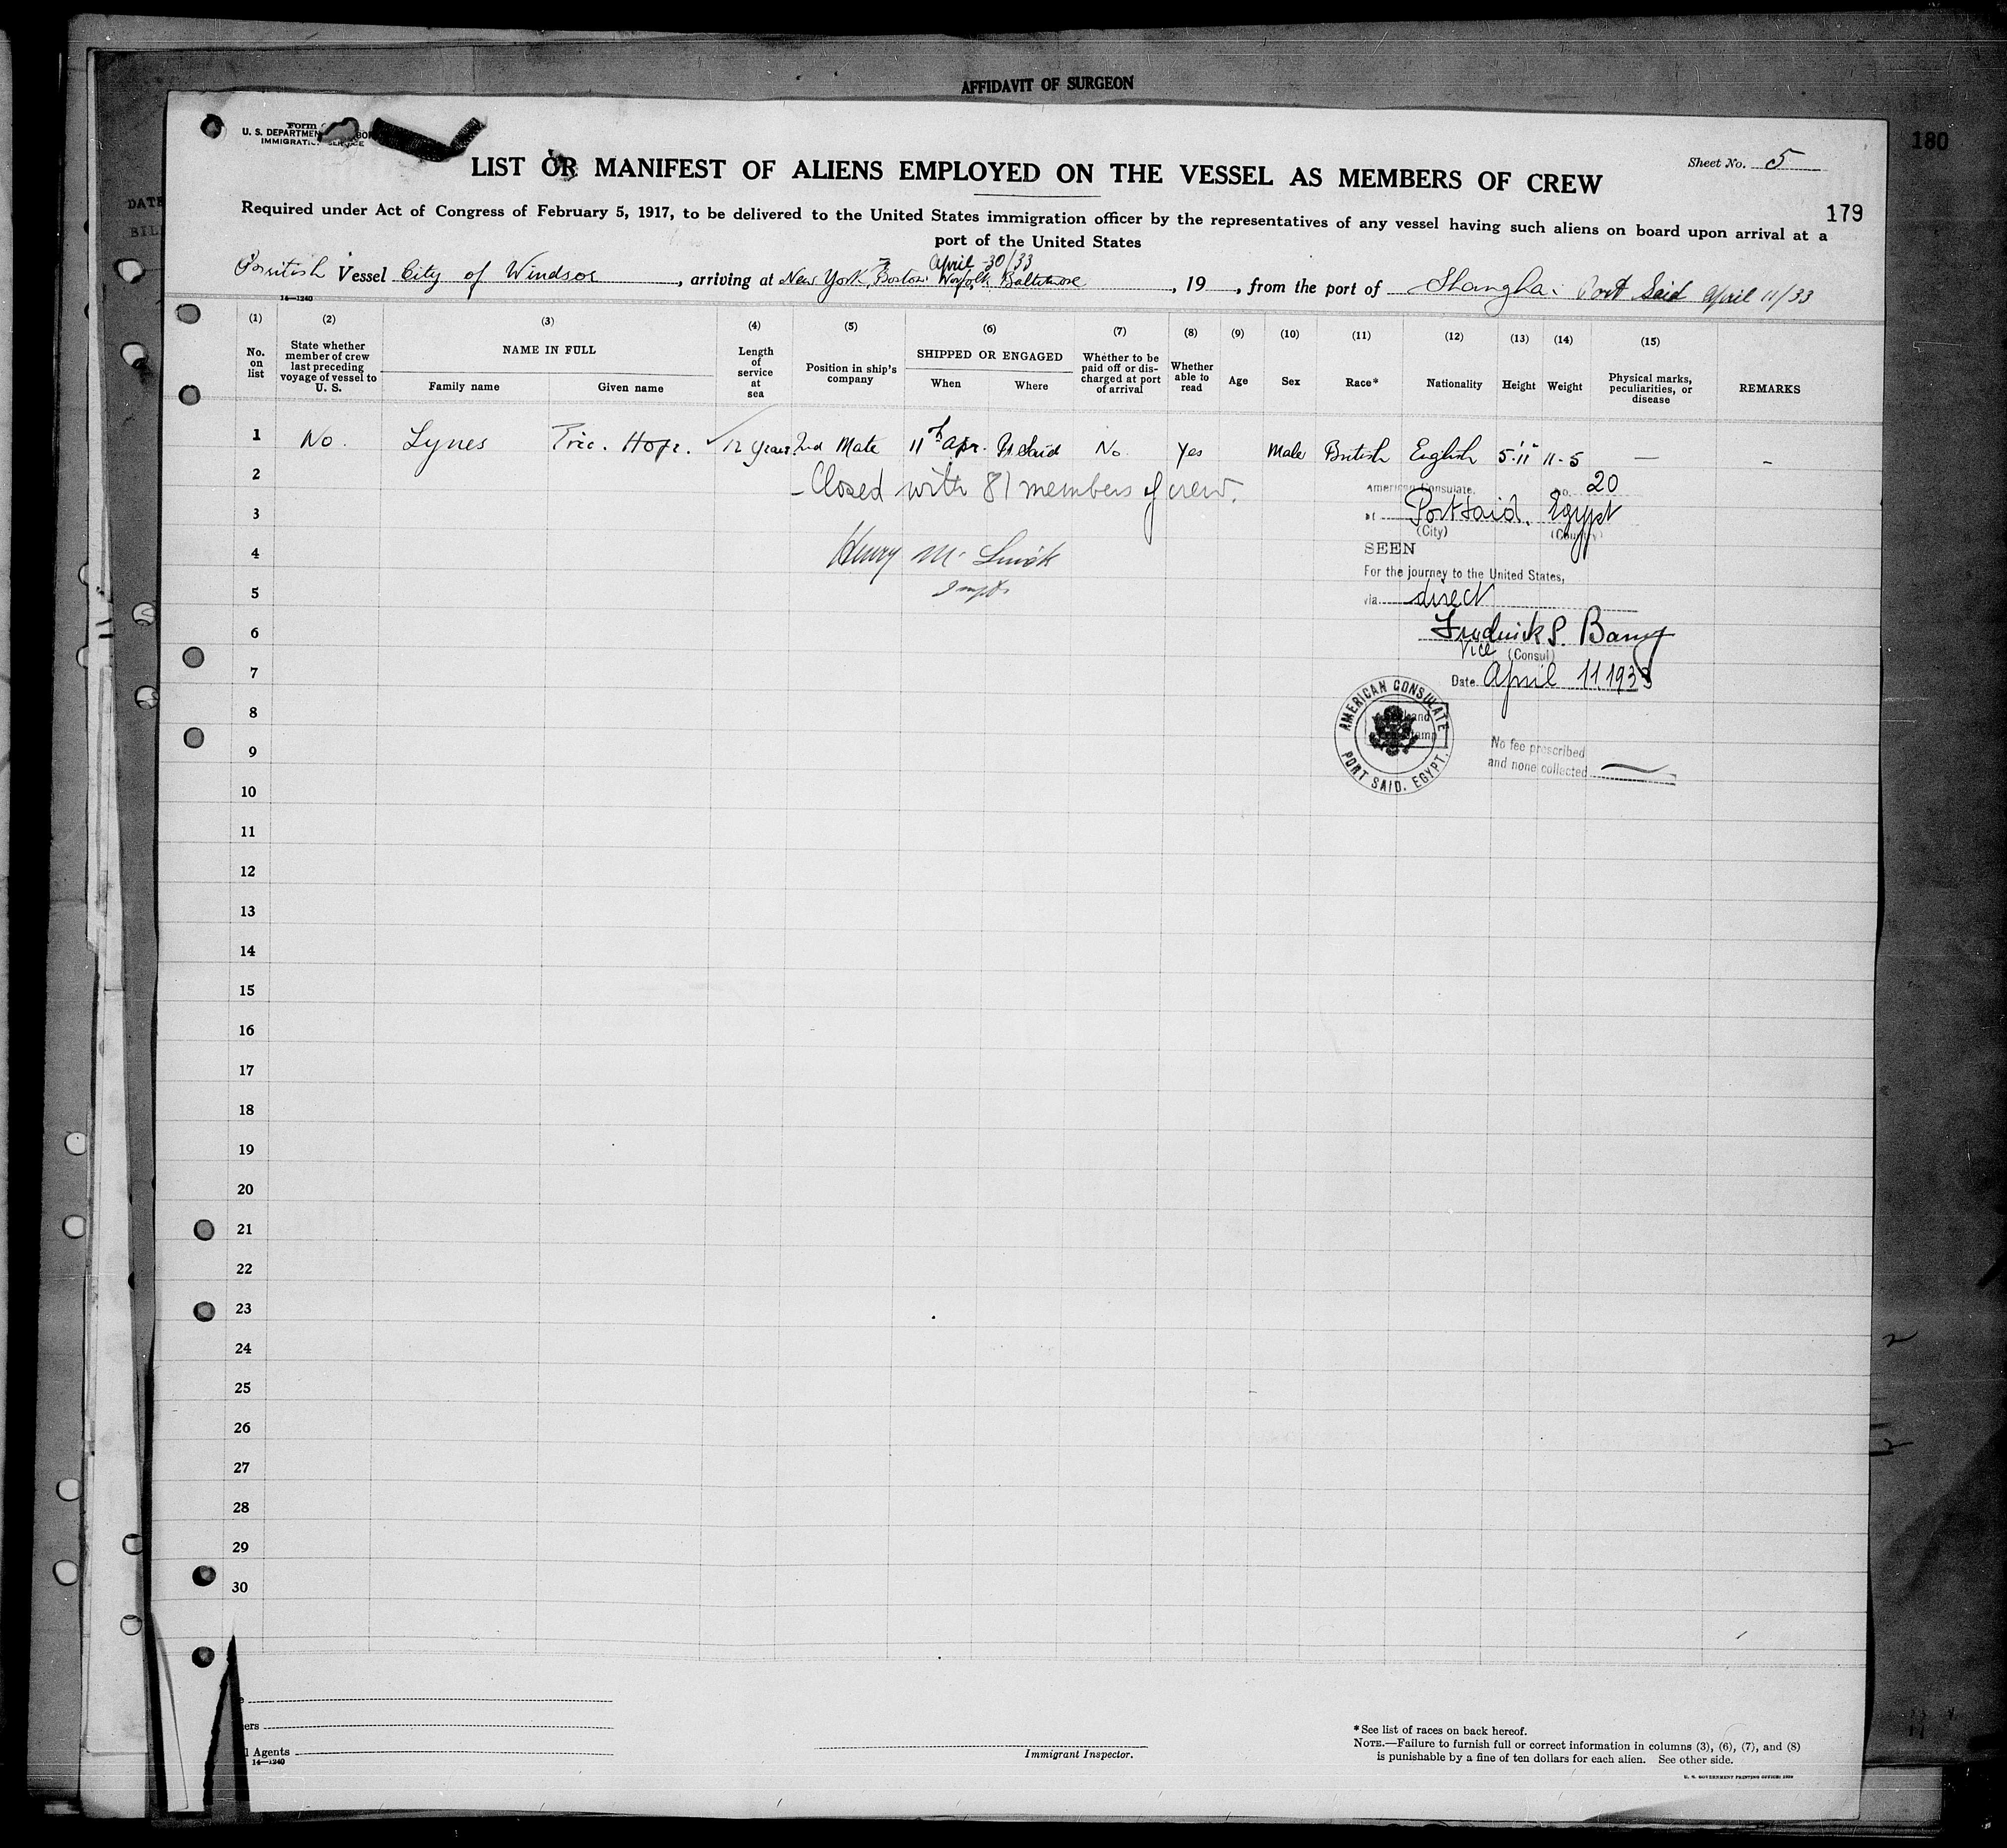 AFFIDAVIT OF SURGEON
180
DATE
BIL
Form
U. S. DEPARTMEN BOR
IMMIGRATION SERVICE
LIST OR MANIFEST OF ALIENS EMPLOYED ON THE VESSEL AS MEMBERS OF CREW
Sheet No. 5
179
Required under Act of Congress of February 5, 1917, to be delivered to the United States immigration officer by the representatives of any vessel having such aliens on board upon arrival at a
port of the United States
April 30/33
British Vessel City of Windsor, arriving at New York, Boston Norfolk Baltimore, 19, from the port of Shanghai Port Said April 11/33
14—1240
(1) (2) (3) (4) (5) (6) (7) (8) (9) (10) (11) (12) (13) (14) (15)
No. on list
State whether member of crew last preceding voyage of vessel to U. S.
NAME IN FULL
Family name Given name
Length of service at sea
Position in ship's company
SHIPPED OR ENGAGED
When Where
Whether to be paid off or discharged at port of arrival
Whether able to read
Age
Sex
Race*
Nationality
Height
Weight
Physical marks, peculiarities, or disease
REMARKS
1 No. Lynes Eric. 12 years 2nd Mate 11th Apr. Pt Said No Yes Male British English 5'11" 11-5 — -
2 - Closed with 81 members of crew.
American Consulate, No. 20
3
at Port Said, Egypt
(City) (Country)
4 Henry
SEEN
For the journey to the United States,
5
via direct
6
Frederick S. Barny
Vice (Consul)
7
Date April 11 1933
8
AMERICAN CONSULATE
PORT SAID, EGYPT.
9
No fee prescribed
and none collected
10
11
12
13
14
15
16
17
18
19
20
21
22
23
24
25
26
27
28
29
30
ers
l Agents
14—1240
Immigrant Inspector.
*See list of races on back hereof.
NOTE.—Failure to furnish full or correct information in columns (3), (6), (7), and (8)
is punishable by a fine of ten dollars for each alien. See other side.